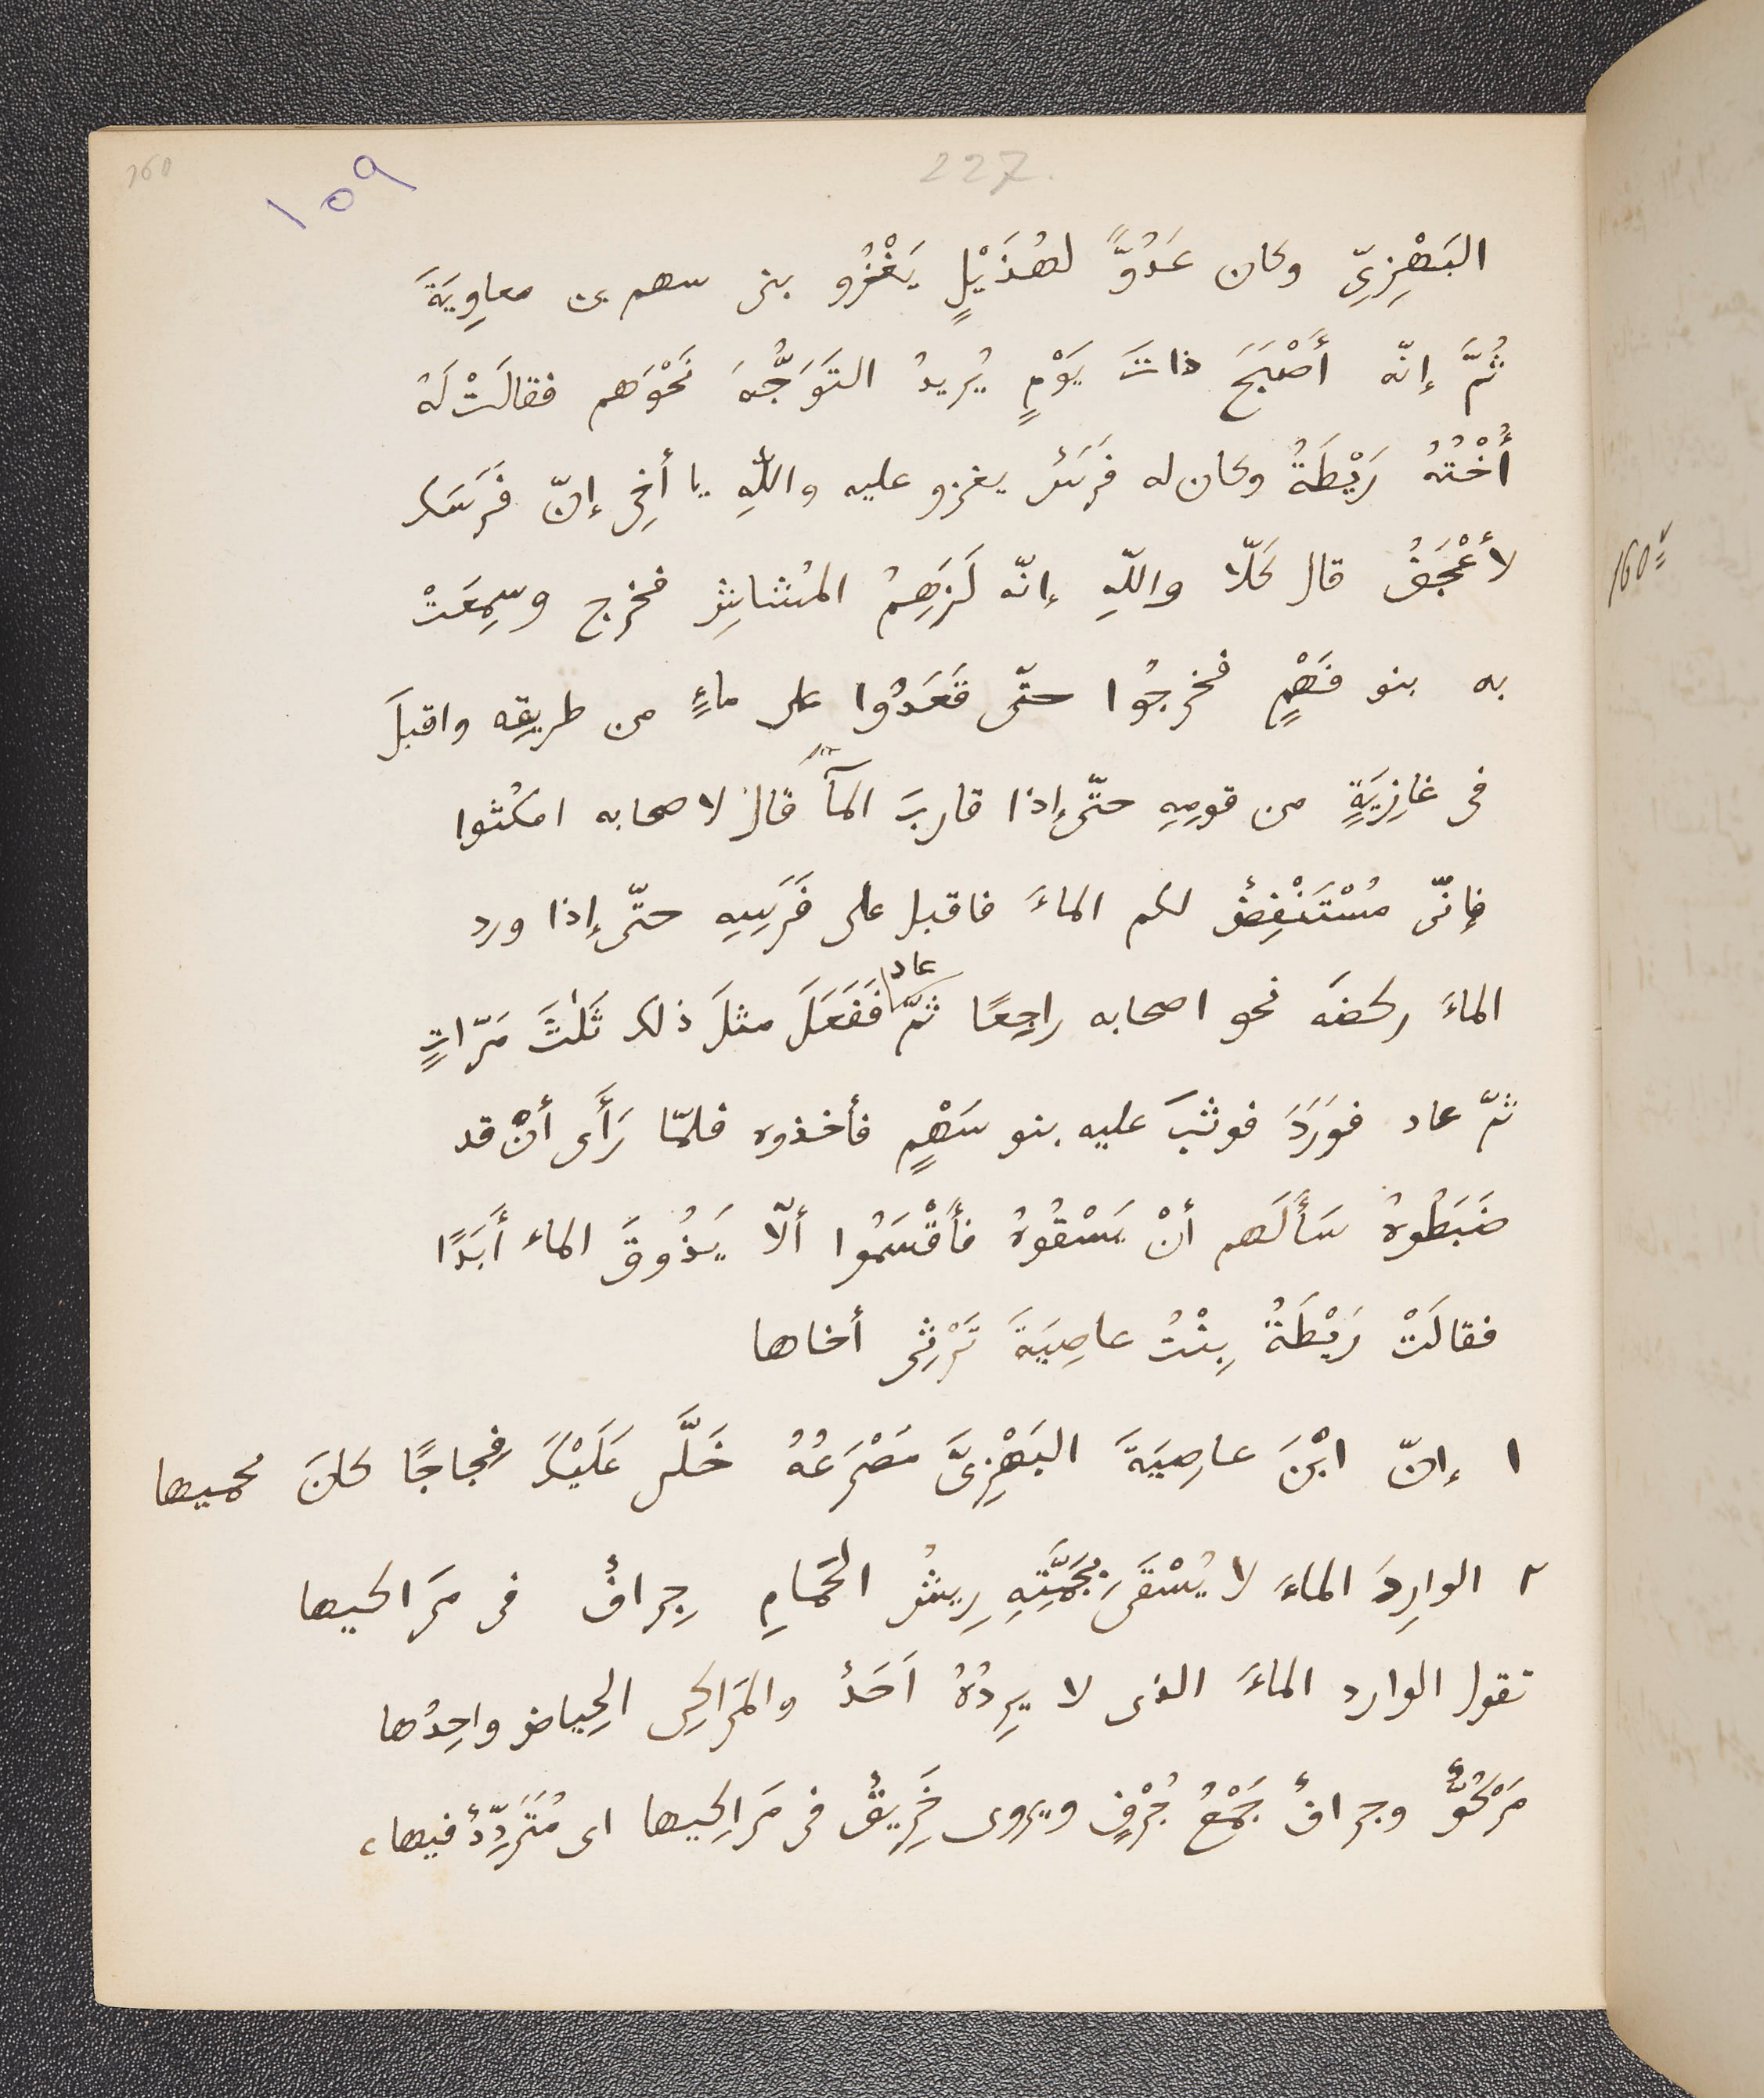 160
227.
١٥٩
البَهْزِىّ وكان عَدُوًّا لهُذَيْلٍ يَغْزُو بنى سهم بن معاوِيَةَ
ثُمَّ إنّه أَصْبَحَ ذاتَ يَوْمٍ يُرِيدُ التَوَجُّهَ نَحْوَهم فقالَتْ لَهُ
أُخْتُهُ رَيْطَةُ وكان له فَرَسٌ يغزو عليه واللهِ يا أخِى إنّ فَرَسَك
لأَعْجَفُ قال كَلّا واللهِ إنّه لَزَهِمُ المُشاشِ فخرج وسِمِعَتْ
به بنو فَهْمٍ فخرجُوا حتّى قَعَدُوا على ماءٍ من طريقِه واقبلَ
فى غازِيَةٍ من قومِهِ حتّى إذا قاربَ المآء قال لاصحابه امكُثوا
فإنّى مُسْتَنْفِضٌ لكم الماءَ فاقبل على فَرَسِهِ حتّى إذا ورد
الماءَ ركضَه نحو اصحابه راجِعًا ثمّ عاد فَفَعَلَ مثلَ ذلك ثَلٰثَ مَرّاتٍ
ثمّ عاد فوَرَدَ فوثبَ عليه بنو سَهْمٍ فأخذوه فلمّا رَأَى أنْ قد
ضَبَطُوهُ سَأَلَهم أنْ يَسْقُوهُ فأَقْسَمُوا ألّا يَذُوقَ الماء أَبَدًا
فقالَتْ رَيْطَةُ بِنْتُ عاصِيَةَ تَرْثِى أخاها
١ إنّ ابْنَ عاصِيَةَ البَهْزِىَّ مَصْرَعُهُ خَلَّى عَلَيْكَ فِجاجًا كانَ يحميها
٢ الوارِدَ الماءَ لا يُسْقَى بِجَمَّتِهِ رِيشُ الحَمَامِ جِرافٌ فى مَراكيها
تقول الوارد الماءَ الذى لا يرِدُهُ اَحَدٌ والمَرَاكِى الحِياض واحِدُها
مَرْكُوٌّ وجرافٌ جَمْعُ جُرْفٍ ويروى خَرِيقٌ فى مَراكِيها اى مُتَرَدِّدٌ فيها،
160